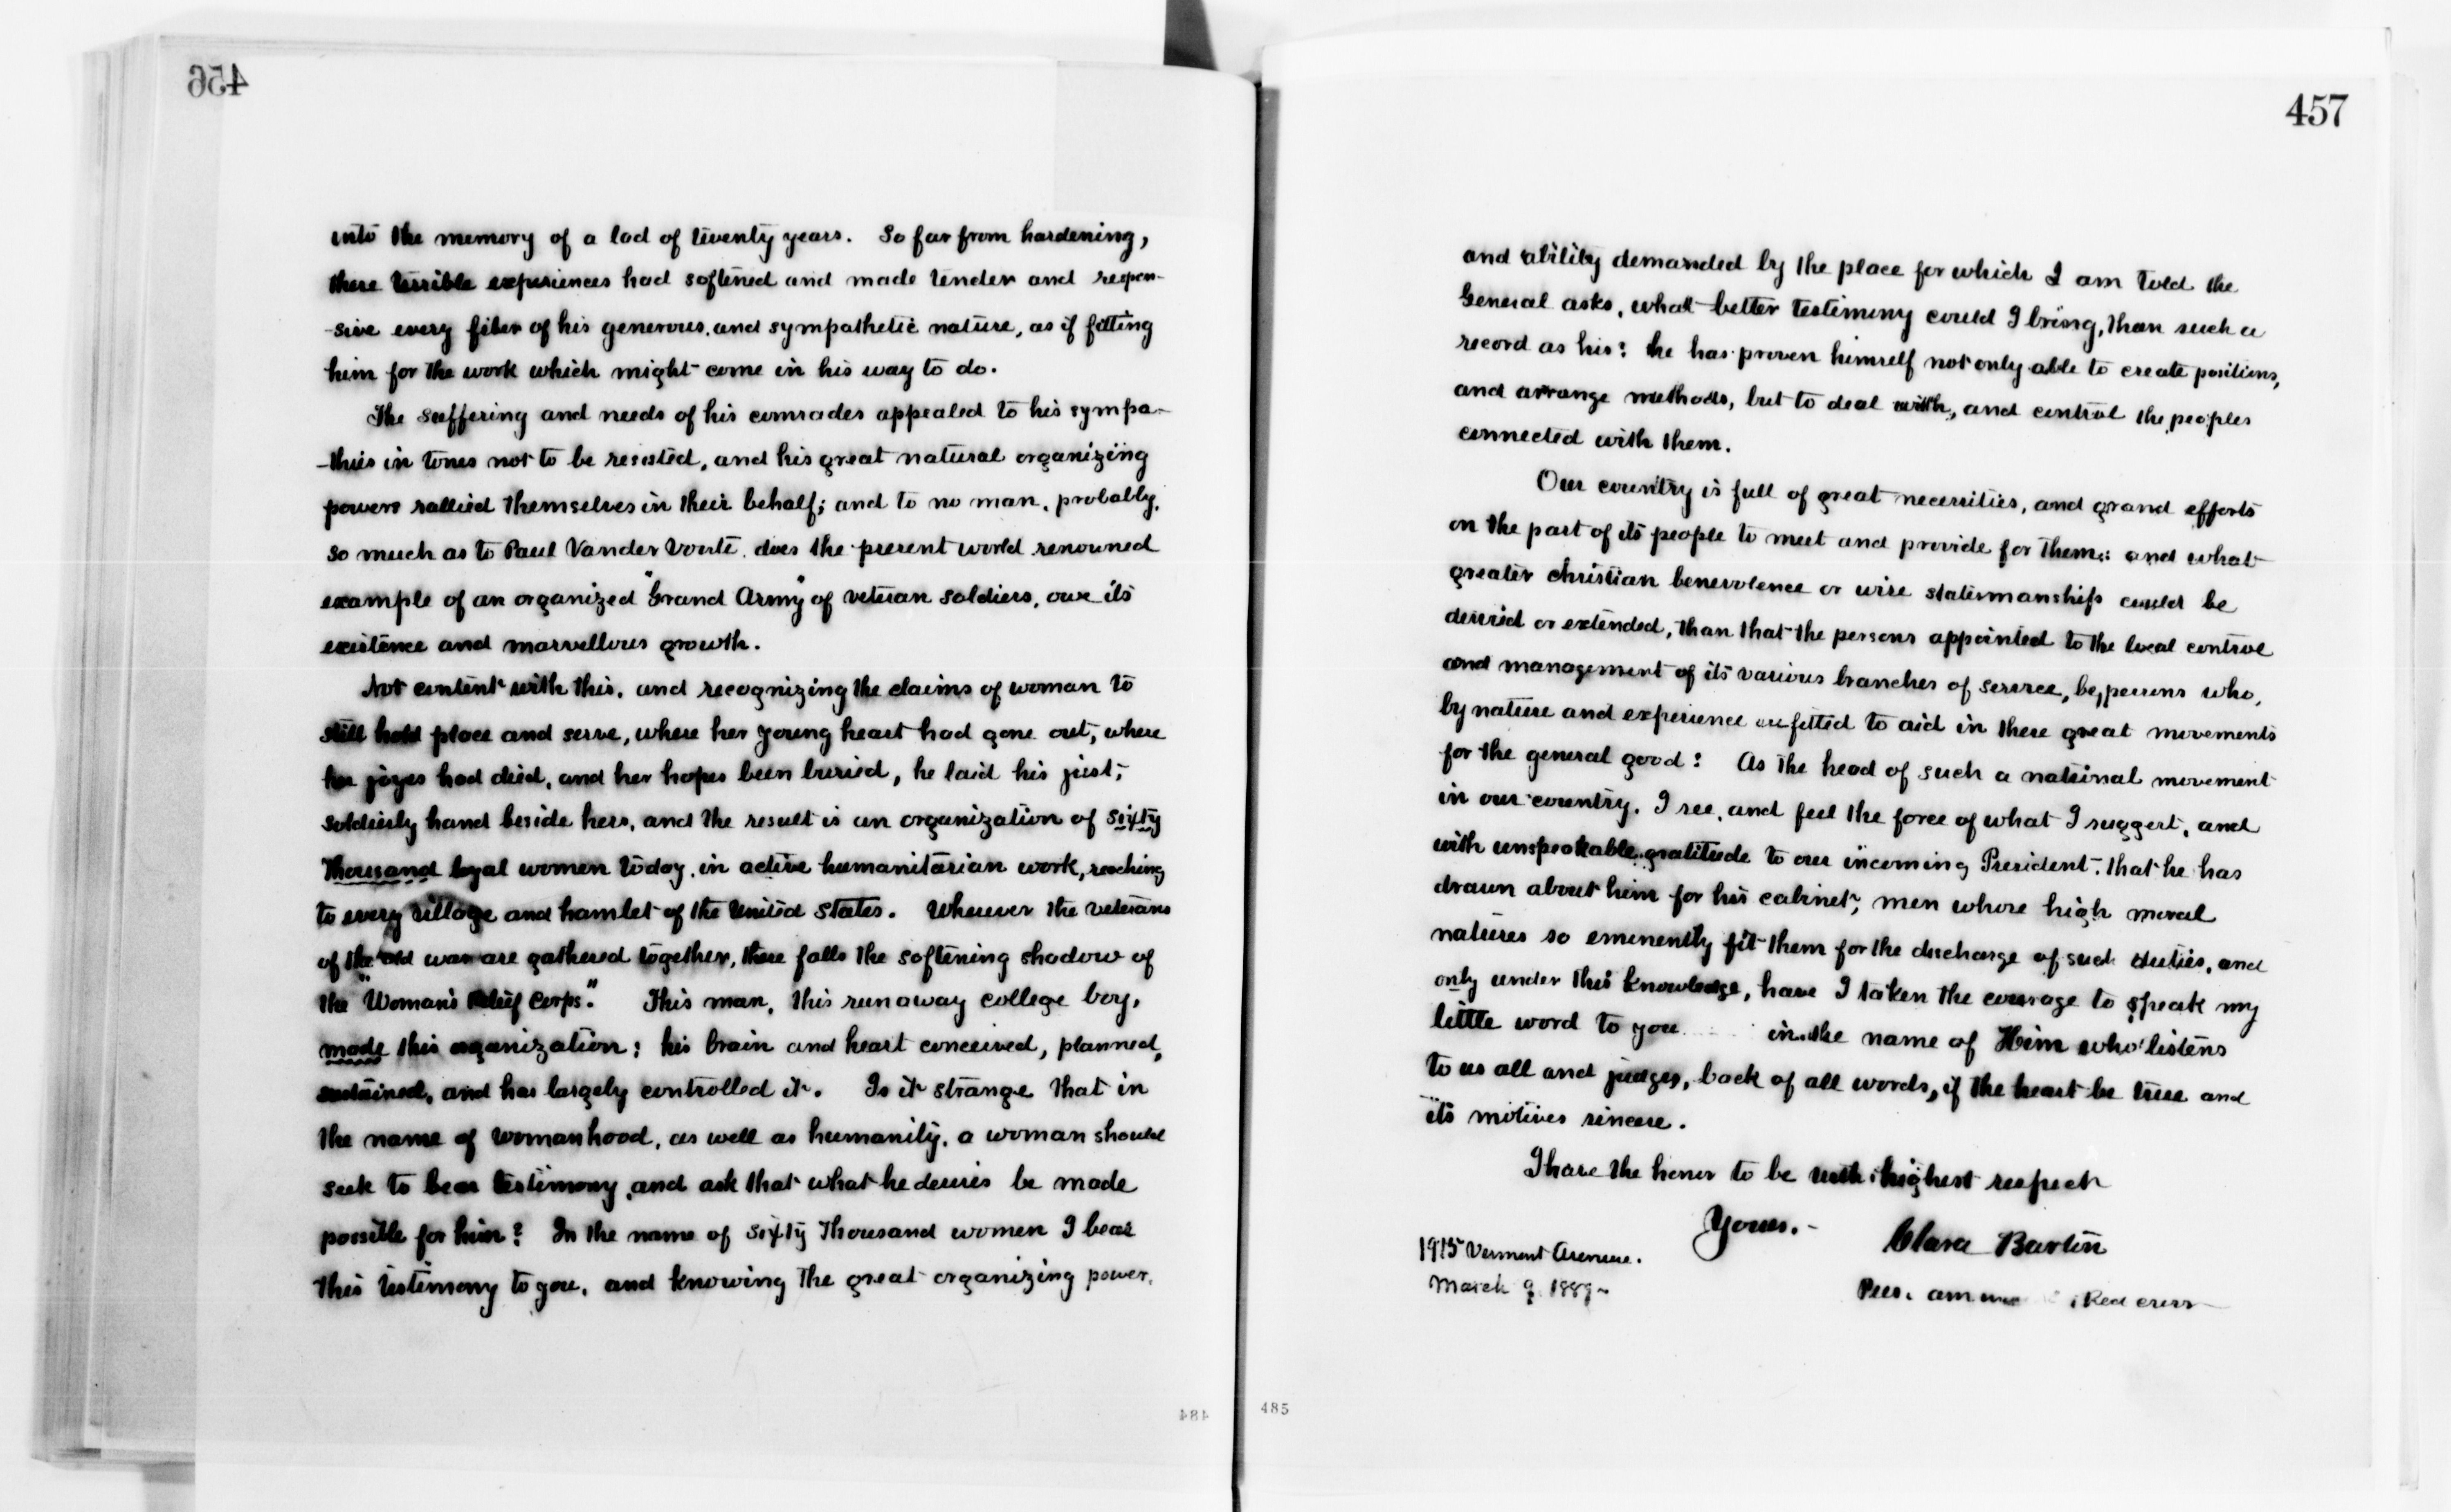 456
into the memory of a lad of twenty years. So far from hardening,
these terrible experiences had softened and made tender and respon-
-sive every fiber of his generous, and sympathetic nature, as if fitting
him for the work which might come in his way to do.
The suffering and needs of his comrades appealed to his sympa-
-thies in tones not to be resisted, and his great natural organizing
powers rallied themselves in their behalf; and to no man, probably,
so much as to Paul Vander Voute, does the present world renowned
example of an organized "Grand Army" of veteran soldiers, owe its
existence and marvellous growth.
Not content with this, and recognizing the claims of woman to
still hold place and serve, where her young heart had gone out, where
her joyes had died, and her hopes been buried, he laid his just,
soldierly hand beside hers, and the result is an organization of sixty
thousand loyal women today, in active humanitarian work, reaching
to every village and hamlet of the United States. Wherever the veterans
of the old war are gathered together, there falls the softening shadow of
the "Woman's Relief Corps." This man, this runaway college boy,
made this organization; his brain and heart conceived, planned,
sustained, and has largely controlled it. Is it strange that in
the name of womanhood, as well as humanity, a woman should
seek to bear testimony, and ask that what he desires be made
possible for him? In the name of sixty thousand women I bear
this testimony to you, and knowing the great organizing power,
484
457
and ability demanded by the place for which I am told the
General asks, what better testimony could I bring, than such a
record as his? he has proven himself not only able to create positions,
and arrange methods, but to deal with, and control the peoples
connected with them.
Our country is full of great necessities, and grand efforts
on the part of its people to meet and provide for them; and what
greater christian benevolence or wise statesmanship could be
desired or extended, than that the persons appointed to the local control
and management of its various branches of service, be persons who,
by nature and experience are fitted to aid in these great movements
for the general good? As the head of such a national movement
in our country, I see, and feel the force of what I suggest, and
with unspeakable gratitude to our incoming President, that he has
drawn about him for his cabinet, men whose high moral
natures so eminently fit them for the discharge of such duties, and
only under this knowledge, have I taken the courage to speak my
little word to you in the name of Him who listens
to us all and judges, back of all words, if the heart be true and
its motives sincere.
I have the honor to be with highest respect
Yours.-
Clara Barton
1915 Vermont Avenue.
March 9 1889
Pres. Red Cross
485